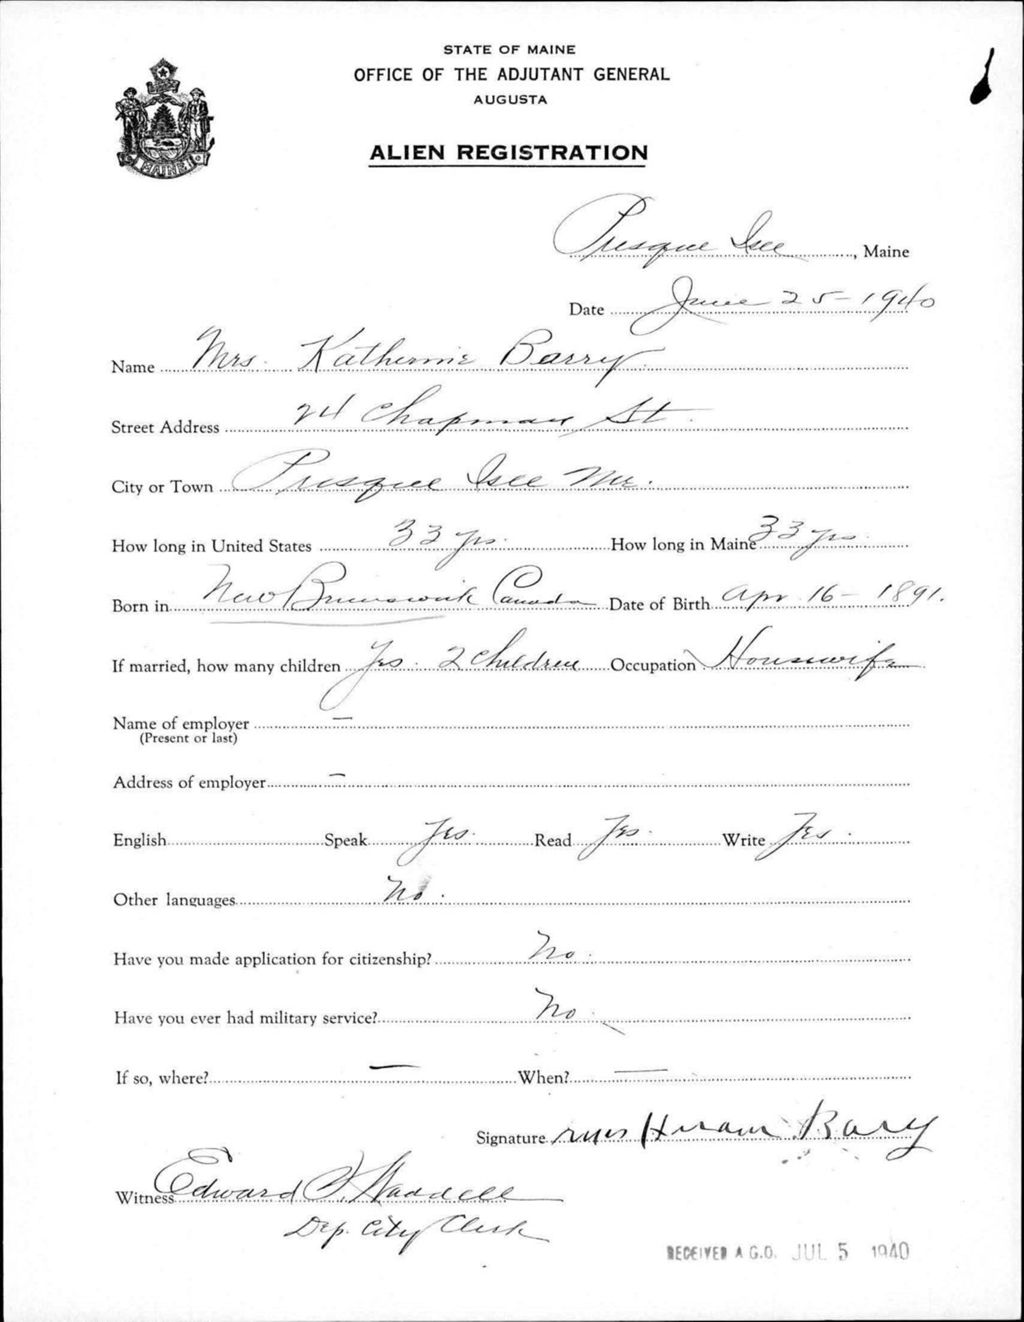 STATE OF MAINE
OFFICE OF THE ADJUTANT GENERAL
AUGUSTA
MAINE
ALIEN REGISTRATION
Presque Isle, Maine
Date June 25-1940
Name Mrs. Katherine Barry
Street Address 24 Chapman St.
City or Town Presque Isle Me.
How long in United States 33 yrs. How long in Maine 33 yrs
Born in New Brunswick Canada Date of Birth Apr 16-1891.
If married, how many children Yes. 2 Children Occupation Housewife
Name of employer —
(Present or last)
Address of employer —
English Speak Yes. Read Yes. Write Yes.
Other languages No.
Have you made application for citizenship? No.
Have you ever had military service? No.
If so, where? — When? —
Signature Mrs Hiram Barry
Witness Edward Waddell
Dep. City Clerk
RECEIVED A.G.O. JUL 5 1940